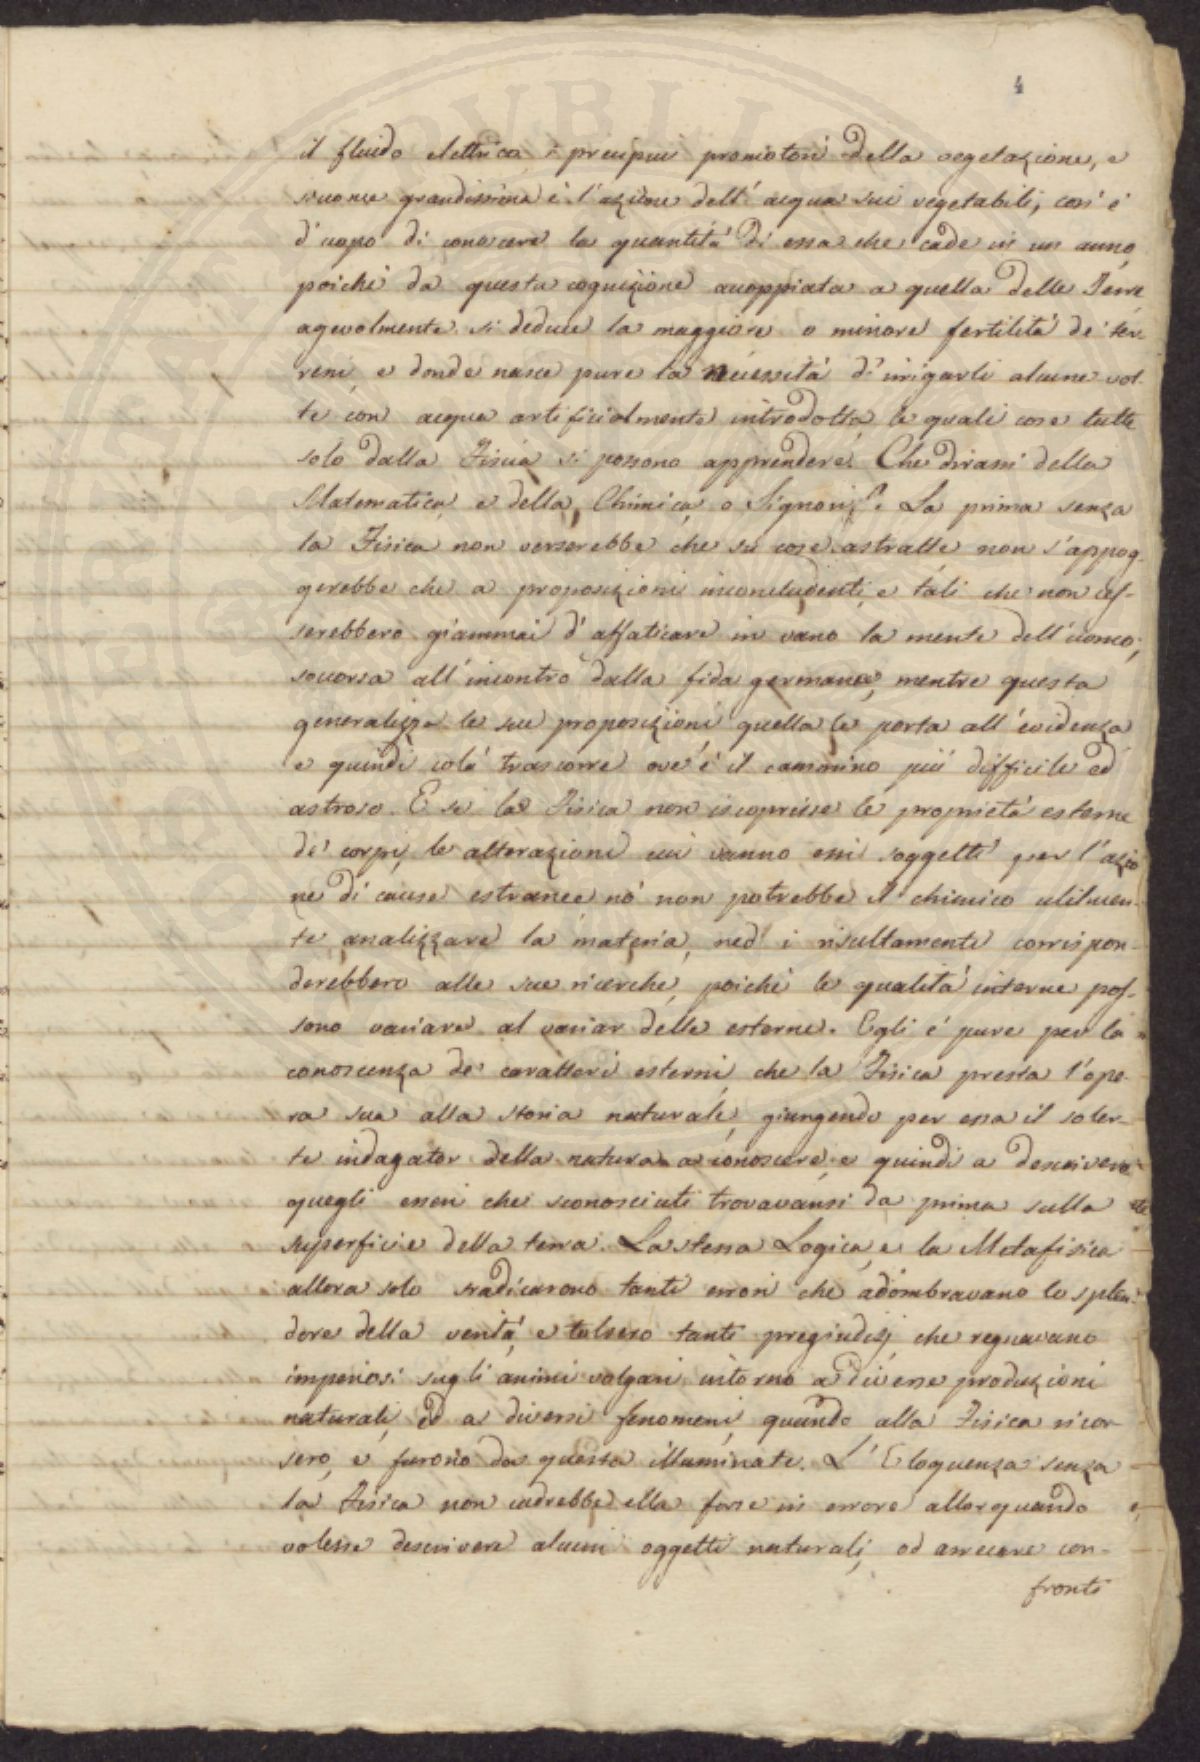 4
il fluido elettrico i precipui promotori della vegetazione, e
siccome grandissima è l'azione dell'acqua sui vegetabili, così è
d'uopo di conoscere la quantità di essa che cade in un anno,
poichè da questa cognizione accoppiata a quella delle Terre
agevolmente si deduce la maggiore o minore fertilità de' ter-
reni, e donde nasce pure la necessità d'irrigarli alcune vol-
te con acqua artificialmente introdotta, le quali cose tutte
solo dalla Fisica si possono apprendere. Che dirassi della
Matematica, e della Chimica, o Signori? La prima senza
la Fisica non verserebbe che su cose astratte non s'appog-
gerebbe che a proposizioni inconcludenti, e tali che non ces-
serebbero giammai d'affaticare in vano la mente dell'uomo;
soccorsa all'incontro dalla fida germana, mentre questa
generalizza le sue proposizioni quella le porta all'evidenza
e quindi colà trascorre ov'è il cammino più difficile ed
astroso. E se la Fisica non iscoprisse le proprietà esterne
de' corpi, le alterazioni cui vanno essi soggetti per l'azio
ne di cause estranee nò non potrebbe il chimico utilmen-
te analizzare la materia, ned i risultamenti corrispon-
derebbero alle sue ricerche, poichè le qualità interne pos-
sono variare al variar delle esterne. Egli è pure per la
conoscenza de' caratteri esterni, che la Fisica presta l'ope-
ra sua alla storia naturale, giungendo per essa il soler-
te indagator della natura a conoscere, e quindi a descrivere
quegli esseri che sconosciuti trovavansi da prima sulla
superficie della terra. La stessa Logica, e la Metafisica
allora solo sradicarono tanti errori che adombravano lo splen-
dore della verità, e tolsero tanti pregiudizj che regnavano
imperiosi sugli animi volgari intorno a diverse produzioni
naturali, ed a diversi fenomeni, quando alla Fisica ricor-
sero, e furono da questa illuminate. L'Eloquenza senza
la Fisica non cadrebbe ella forse in errore allorquando
volesse descrivere alcuni oggetti naturali, od arrecare con-
fronti